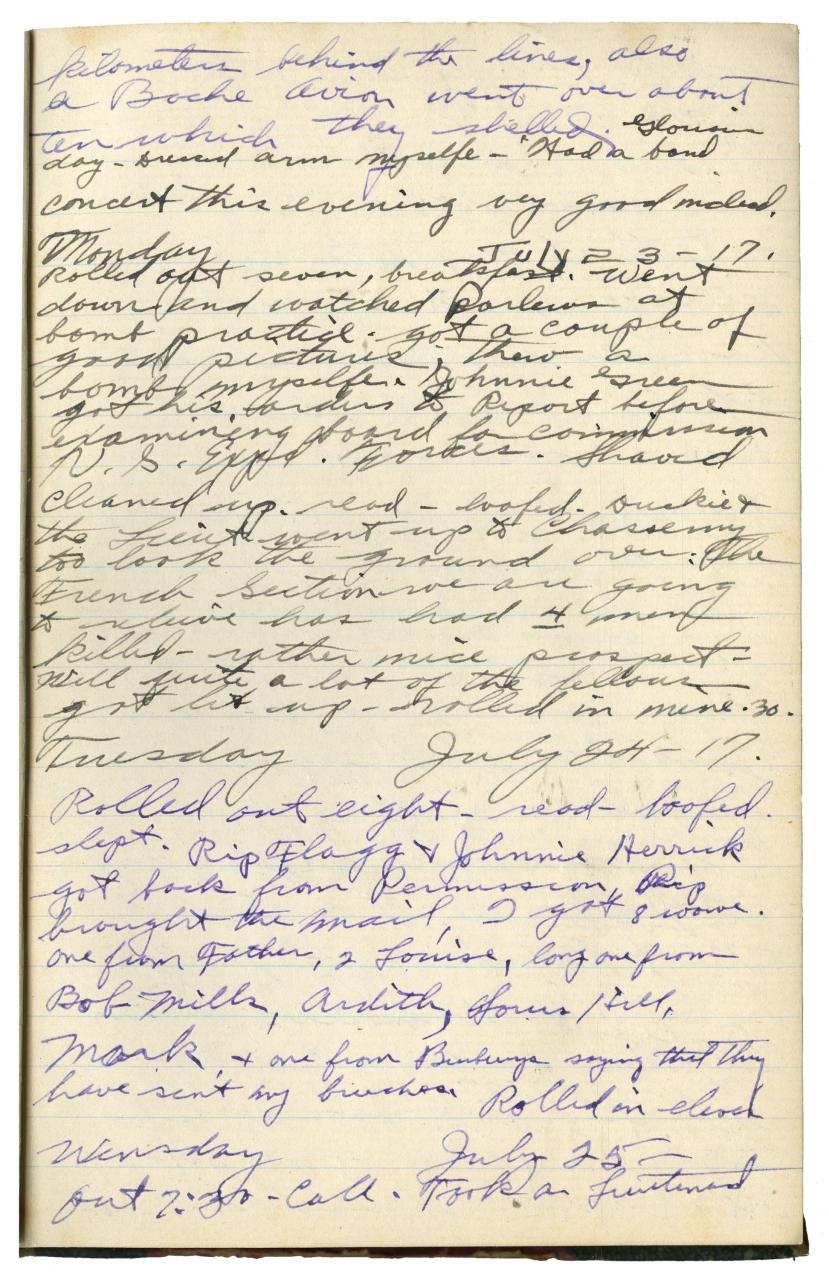 kilometers behind the lines, also
a Boche Avion went over about
ten which they shelled. Glorious
day - Dressed arm myselfe - Had a band
concert this evening very good indeed.
Monday July 23-17.
Rolled out seven, breakfast. Went
down and watched Poilews at
bomb practice. got a couple of
good pictures, threw a
bomb myselfe. Johnnie Green
got his orders to Report before
examining board for commission
U.S. Expd. Forces. Shaved
cleaned up. read - loofed - Duckie &
the Lieut. went up to Chassemy
too look the ground over. The
French Section we are going
to releive has had 4 men
killed - rather nice prospect -
Well quite a lot of the fellows
got lit up - rolled in nine.30.
Tuesday July 24-17.
Rolled out eight - read - loofed.
slept. Rip Flagg & Johnnie Herrick
got back from Permission, Rip
brought the mail, I got 8 wowe.
one from Father, 2 Louise, long one from
Bob Mills, Ardith, Louis Hill,
Mark, & one from Burberrys saying that they
have sen't my breeches. Rolled in eleven
Wensday July 25 -
out 7:30 - Call. Took a Lieutenant